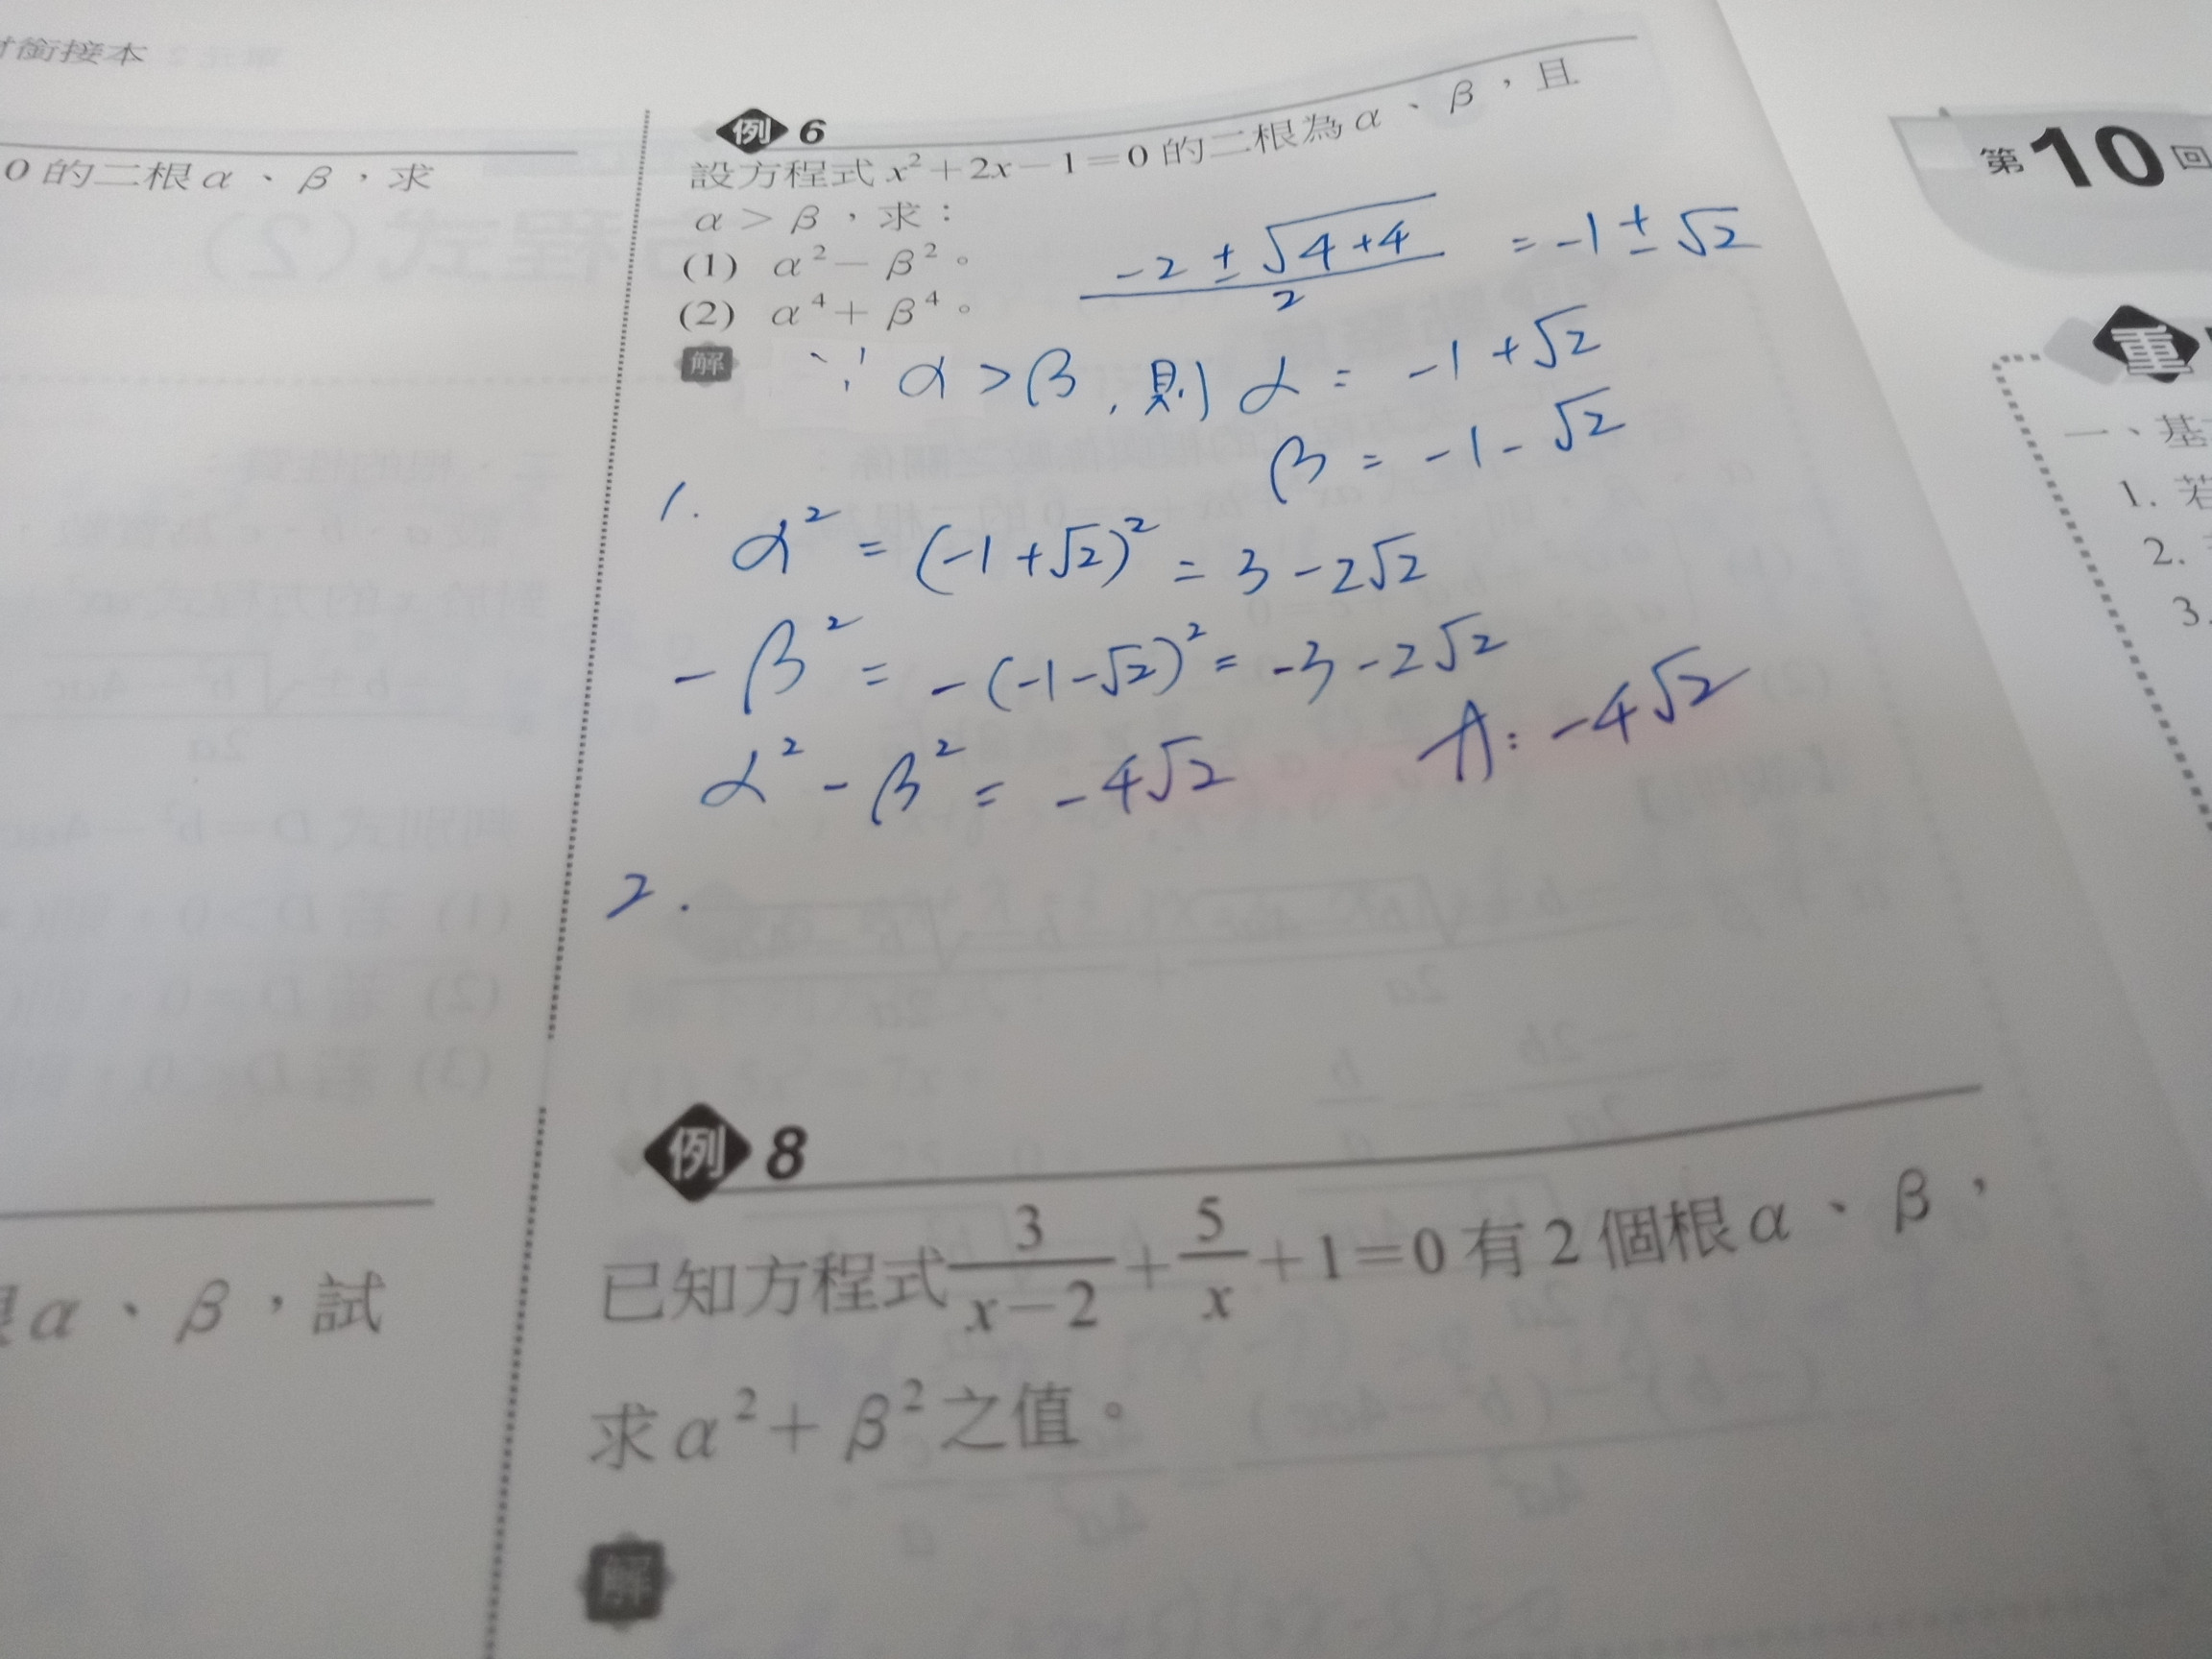 銜接本
0 的二根 α、β，求
根 α、β，試
例 6
設方程式 x²+2x－1＝0 的二根為 α、β，且
α＞β，求：
(1) α²－β²。
(2) α⁴＋β⁴。
(-2±√(4+4))/2 = -1±√2
解
∵ α>β, 則 α = -1+√2
β = -1-√2
1.
α² = (-1+√2)² = 3-2√2
-β² = -(-1-√2)² = -3-2√2
α²-β² = -4√2 A: -4√2
2.
例 8
已知方程式 3/(x－2)＋5/x＋1＝0 有 2 個根 α、β，
求 α²＋β² 之值。
解
第 10 回
重
一、基
1. 若
2.
3.